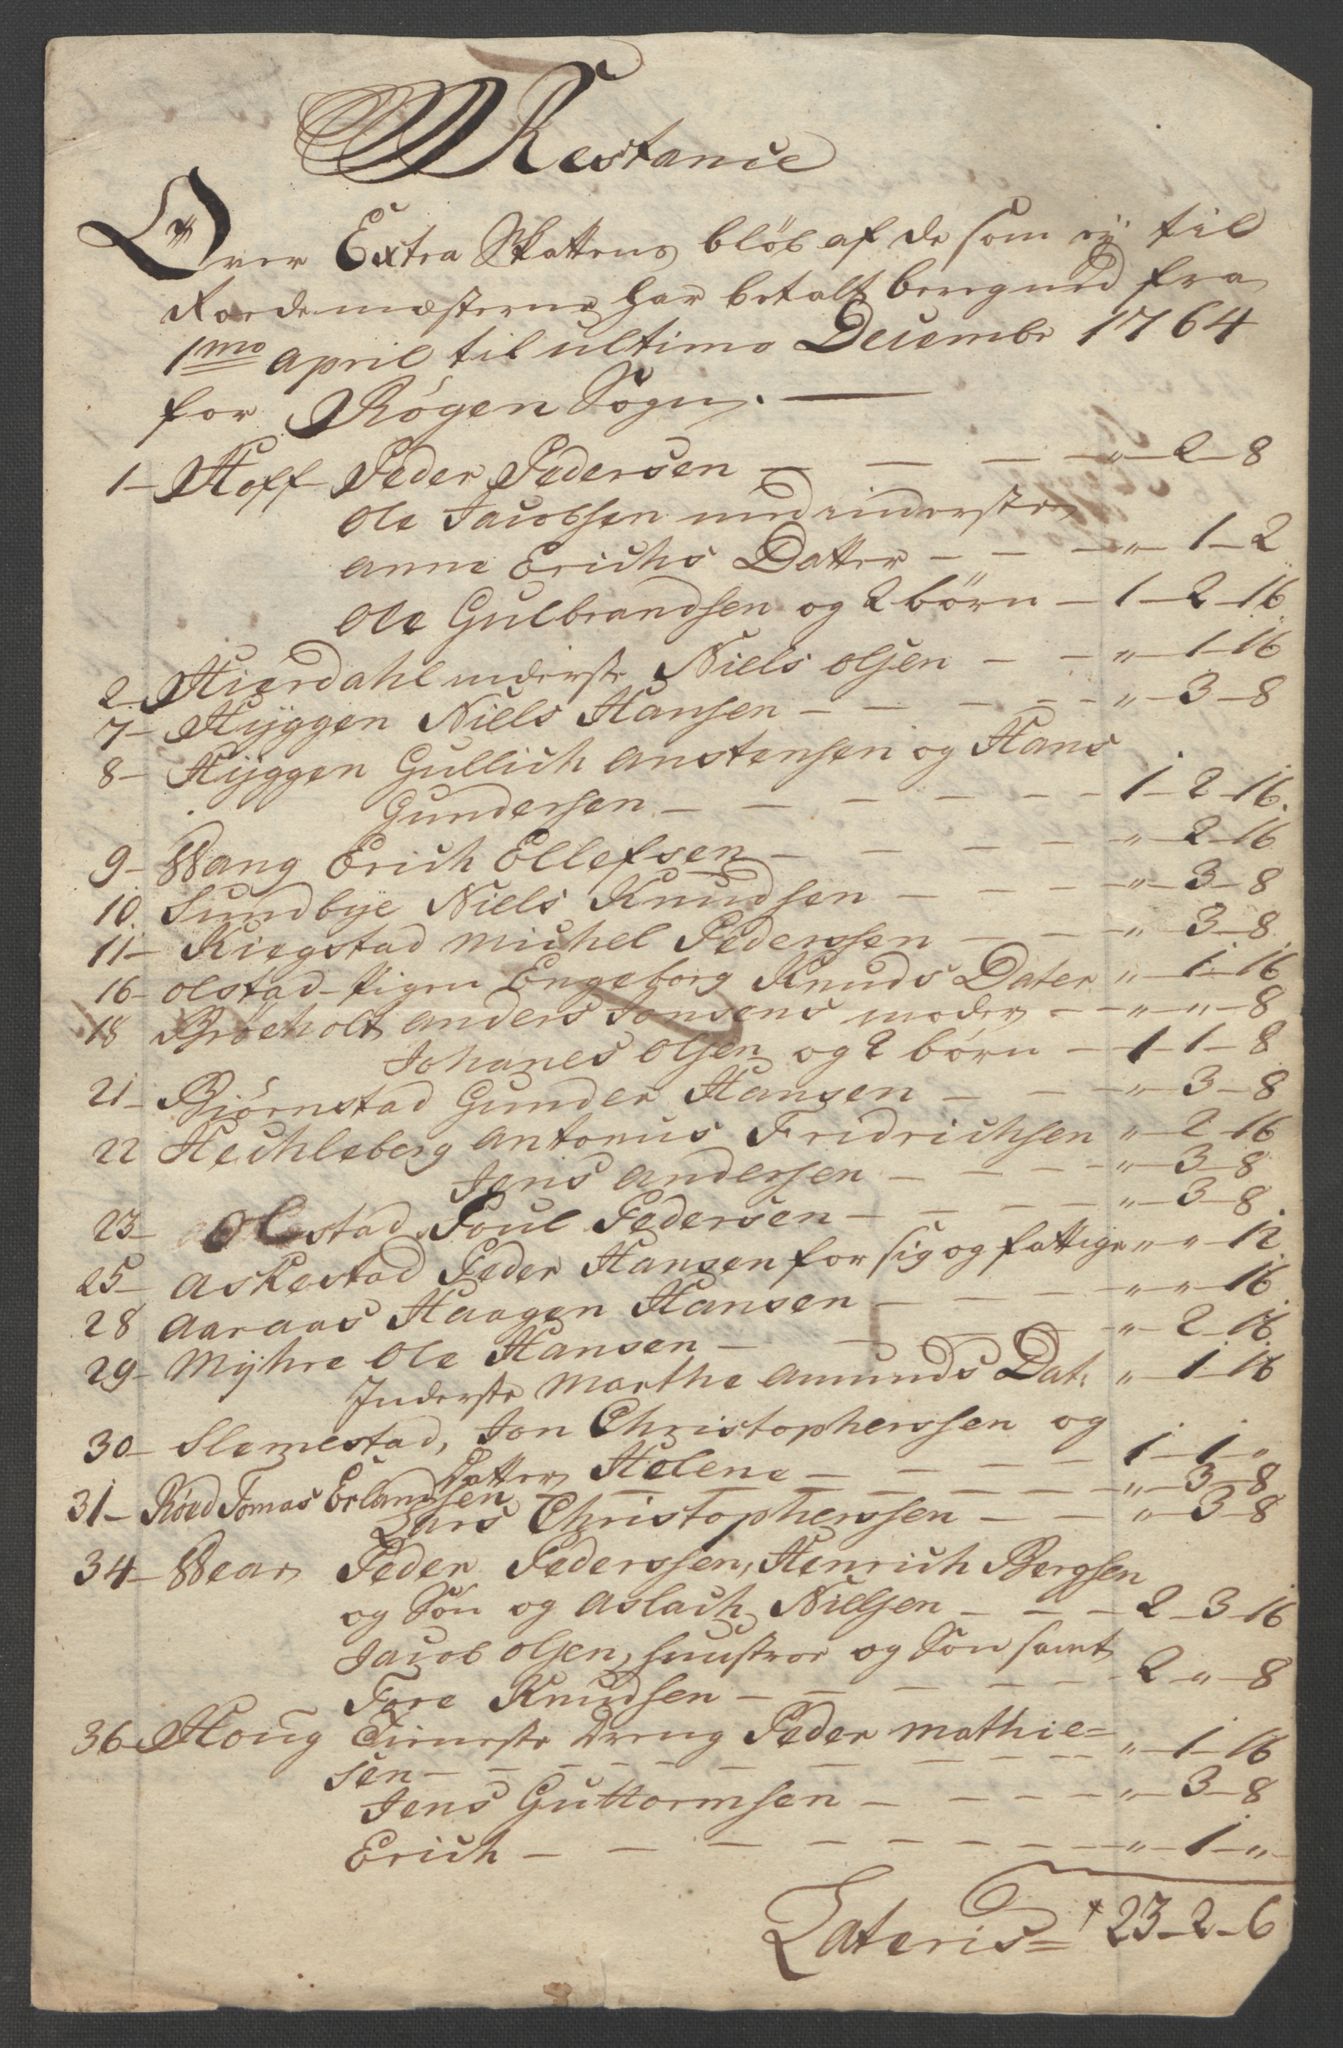 Restance
Over Extra Skattens bløb af de som ey til
Roedemæsterne har betalt beregned fra
1mo april til ultimo Decembr 1764
for Røgen Sogn. —
1 — Hoff Peder Pedersen — — — — " — 2 — 8
Ole Jacobsen med inderste
anne Erichs Datter — — — " — 1 — 2
Ole Gulbrandsen og 2 børn — 1 — 2 — 16
2 — Hierdahl inderste Niels olsen — — " — 1 — 16
7 — Hyggen Niels Hansen — — — — " — 3 — 8
8 — Hyggen Gullich anstensen og Hans
Gundersen — — — — — — 1 — 2 — 16
9 — Wang Erich Ellefsen — — — — " — 2 — 16
10 Sundbye Niels Knudsen — — — — " — 3 — 8
11 — Kiegstad Michel Pederssen — — — " — 3 — 8
16 — olstad — Pigen Engeborg Knuds Dater " — 1 — 16
18 Brøeholt anders Jonsens moder — " — " — 8
Johanes olsen og 2 børn — 1 — 1 — 8
21 — Biørnstad Gunder Hansen — — — " — 3 — 8
22 Hechleberg antonus Fridrichsen " — 2 — 16
Jens andersen — — — — " — 3 — 8
23 — olstad Poul Pedersen — — — — " — 3 — 8
25 — askestad Peder Hansen for sig og fattige " — " — 12
28 aaraas Haagen Hansen — — — — " — " — 16
29 — Myhre Ole Hansen — — — — " — 2 — 16
Inderste Marthe amunds Dat: " — 1 — 16
30 — Slemestad, Jon Christopherssen og
Datter Helene — — — — 1 — 1 — "
31 — Røed Tomas Erlandsen — — — — " — 3 — 8
Lars Christopherssen — — " — 3 — 8
34 — Wear Peder Pederssen, Henrich Bergsen
og Søn og aslach Nielsen — — — 2 — 3 — 16
Jacob olsen, huustroe og Søn samt
Tore Knudsen — — — — — 2 — " — 8
36 — Houg Tieneste Dreng Peder mathie=
sen — — — — — — — " — 1 — 16
Jens Guttormsen — — — — " — 3 — 8
Erich — — — — — — — " — 1 — "
Lateris = 23 — 2 — 6